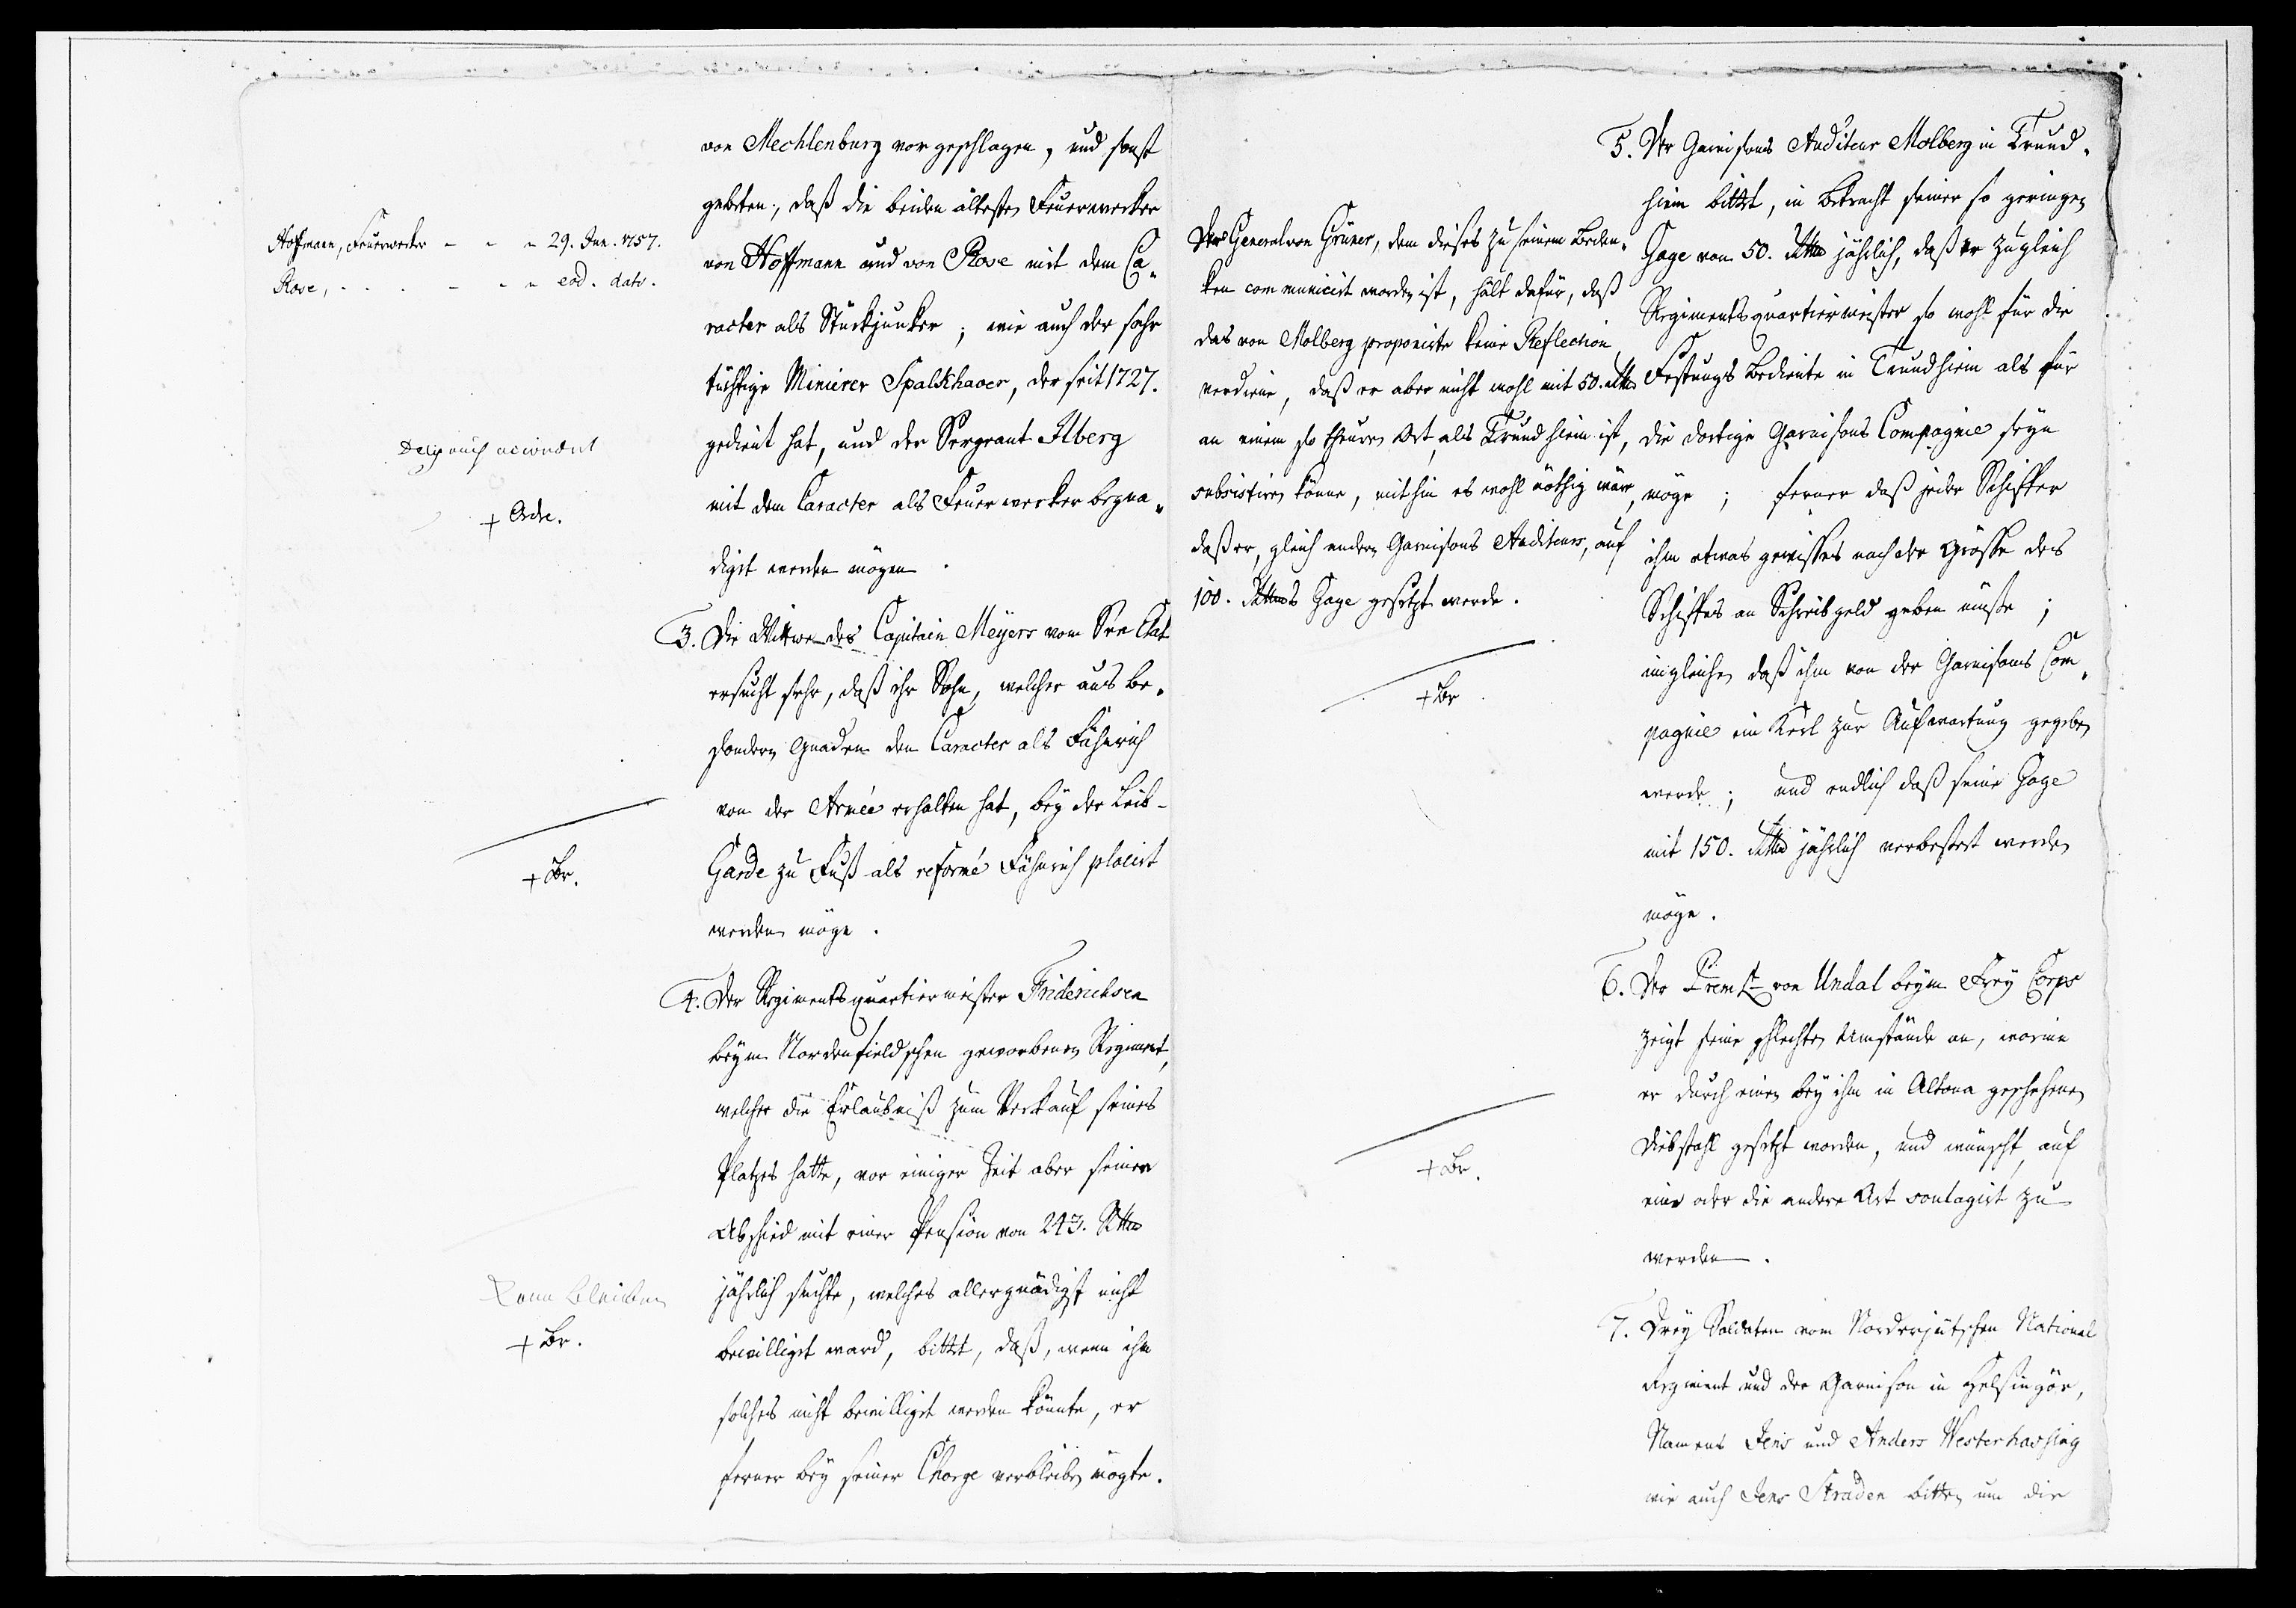 von Mechlenburg vorgeschlagen, und sonst
gebeten, daß die beiden älteste Feuerwercker
von Hoffmann und von Rose mit dem Ca-
racter als Stückjuncker; wie auch der sehr
tüchtige Minierer Spalkhaver, der seit 1727.
gedient hat, und der Sergeant Ilberg
mit dem Caracter als Feuerwerker begna-
digt werden mögen.
Hofmann, Feuerwercker - - - 29. Jun. 1757.
Rose, - - - - - eod. dato.
accordirt
+ Ordre.
3. Die Wittwe des Capitain Meyers vom See Etat
ersucht sehr, daß ihr Sohn, welcher aus be-
sondern Gnaden den Caracter als Fähnrich
von der Armée erhalten hat, bey der Leib-
Garde zu Fuß als reformé Fähnrich placirt
werden möge.
+ Br.
4. Der Regimentsquartiermeister Friderichsen
beym Nordenfieldschen geworbenen Regiment,
welcher die Erlaubniß zum Verkauf seines
Platzes hatte, vor einiger Zeit aber seinen
Abschied mit einer Pension von 243. Rthlr
jährlich suchte, welches allergnädigst nicht
bewilligt ward, bittet, daß, wenn ihm
solches nicht bewilligt werden könnte, er
ferner bey seiner Charge verbleiben mögte.
Kann bleiben
+ Br.
5. Der Garnisons Auditeur Molberg in Trund-
hiem bittet, in Betracht seiner so geringen
Gage von 50. Rthlr jährlich, daß er zugleich
Regimentsquartiermeister so wohl für die
Festungs Bediente in Trundhiem als für
die dortige Garnisons Compagnie seyn
möge; ferner daß jeder Schiffer
ihm etwas gewisses nach der Grösse des
Schiffes an Schreibgeld geben müsse;
imgleichen daß ihm von der Garnisons Com-
pagnie ein Kerl zur Aufwartung gegeben
werde; und endlich daß seine Gage
mit 150. Rthlr jährlich verbessert werden
möge.
Der General von Grüner, dem dieses zu seinem Beden-
ken communicirt worden ist, hält dafür, daß
das von Molberg proponirte keine Reflection
verdiene, daß er aber nicht wohl mit 50. Rthlr
an einem so theuren Ort, als Trundhiem ist,
subsistiren könne, mithin es wohl nöthig wäre,
daß er, gleich andern Garnisons Auditeurs, auf
100. Rthlr Gage gesetzt werde.
+ Br
6. Der Prem Lt von Undal beym Frey Corps
zeigt seine schlechten Umstände an, worinn
er durch einen bey ihm in Altona geschehenen
Diebstahl gesetzt worden, und wünscht, auf
eine oder die andere Art soulagirt zu
werden.
+ Br.
7. Drey Soldaten vom Norderjütschen National
Regiment und der Garnison in Helsingör,
Namens Jens und Anders Westerhassing
wie auch Jens Straden bitten um die